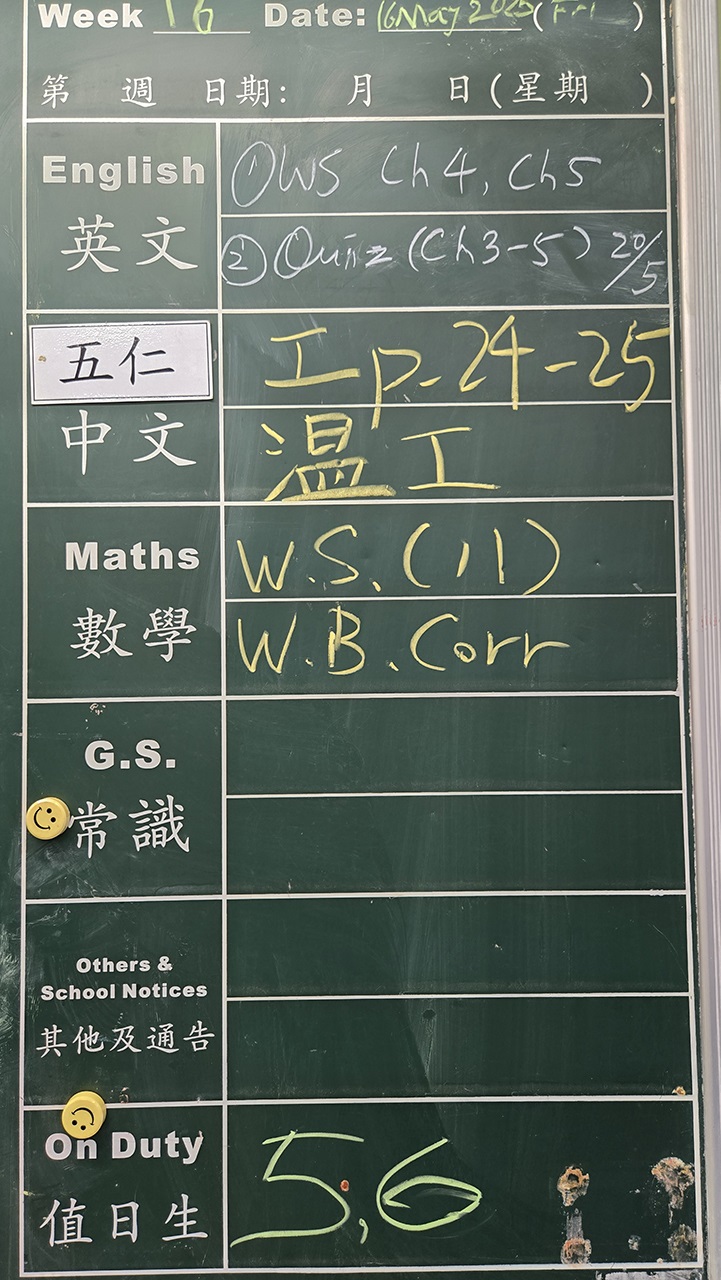 Week 16 Date: 16 May 2025 (Fri)
第 週 日期: 月 日(星期 )
English
英文
① WS Ch4, Ch5
② Quiz (Ch3-5) 20/5
五仁
中文
工 p.24-25
溫工
Maths
數學
W.S.(11)
W.B.Corr
G.S.
常識
Others &
School Notices
其他及通告
On Duty
值日生
5,6